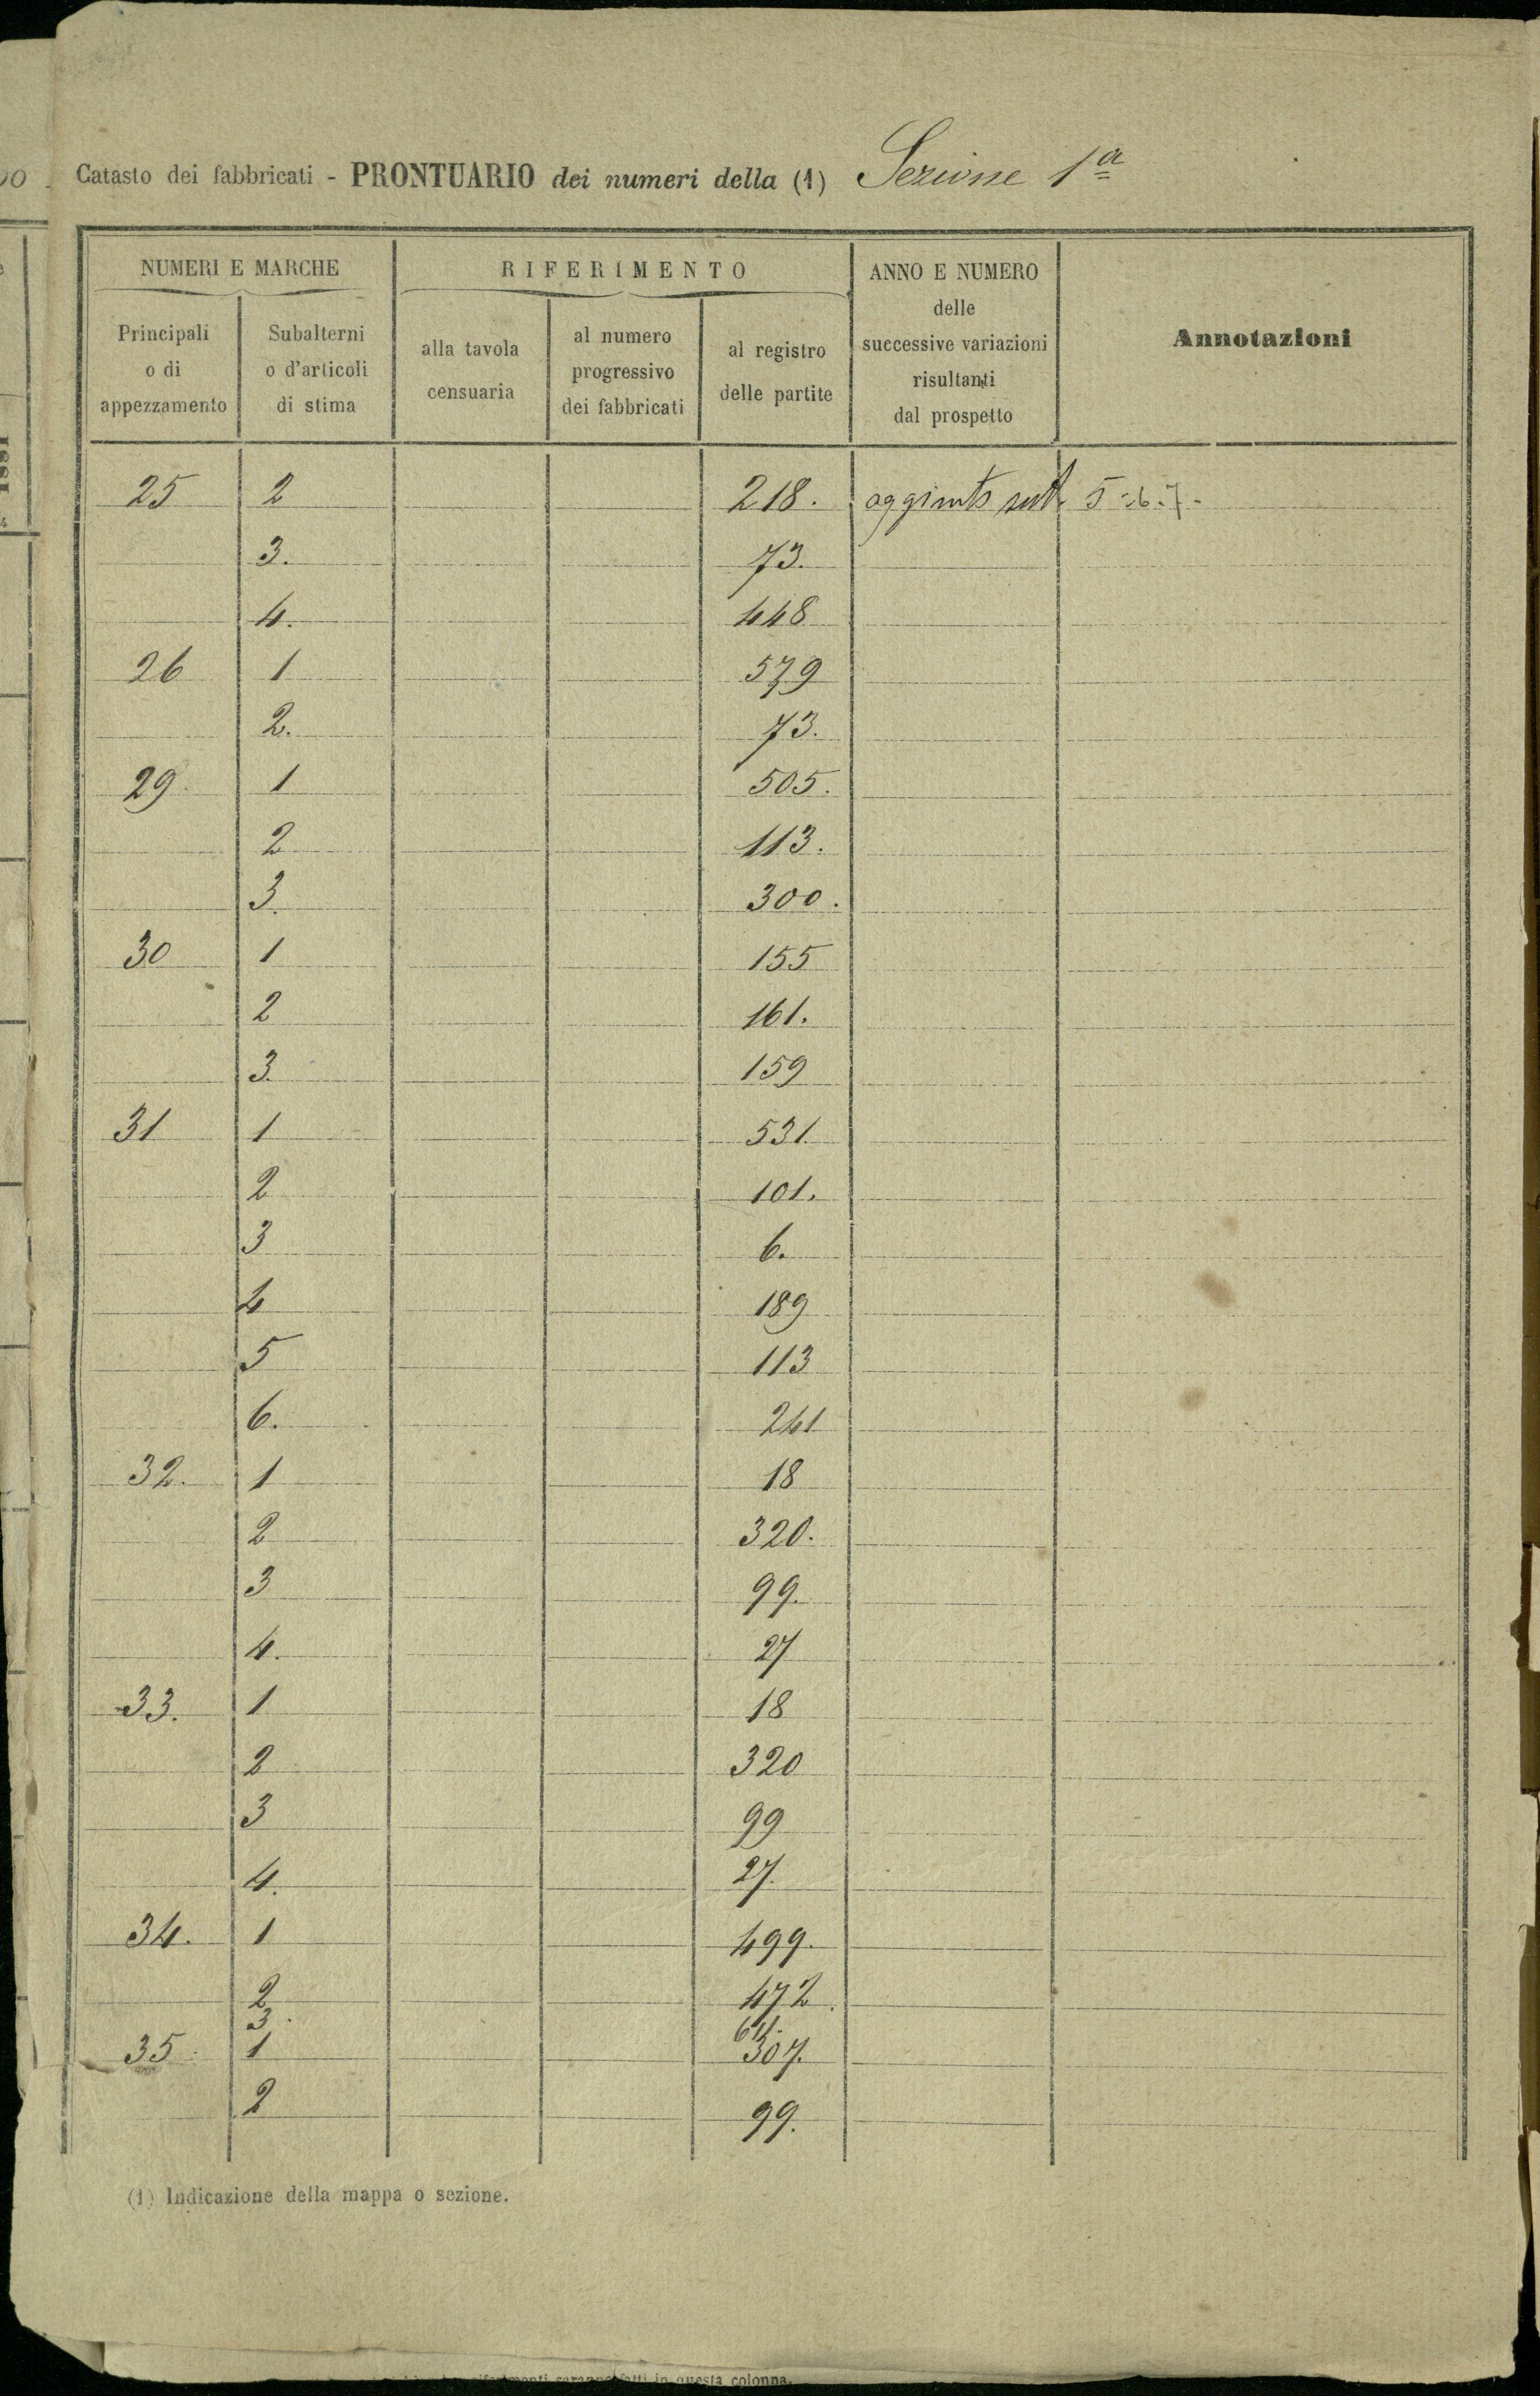 Catasto dei fabbricati - PRONTUARIO dei numeri della (1) Sezione 1ª
NUMERI E MARCHE
RIFERIMENTO
ANNO E NUMERO
delle
successive variazioni
risultanti
dal prospetto
Annotazioni
Principali
o di
appezzamento
Subalterni
o d'articoli
di stima
alla tavola
censuaria
al numero
progressivo
dei fabbricati
al registro
delle partite
25 2 218. aggiunto sub. 5-6-7-
3. 73.
4. 448
26 1 579
2. 73.
29 1 505.
2 113.
3. 300.
30 1 155
2 161.
3. 159
31 1 531.
2 101.
3 6.
4 189
5 113
6. 241
32. 1 18
2 320.
3 99.
4. 27
33. 1 18
2 320
3 99
4. 27.
34. 1 499.
2 472.
3.
35 1 307.
2 99.
(1) Indicazione della mappa o sezione.
in questa colonna.